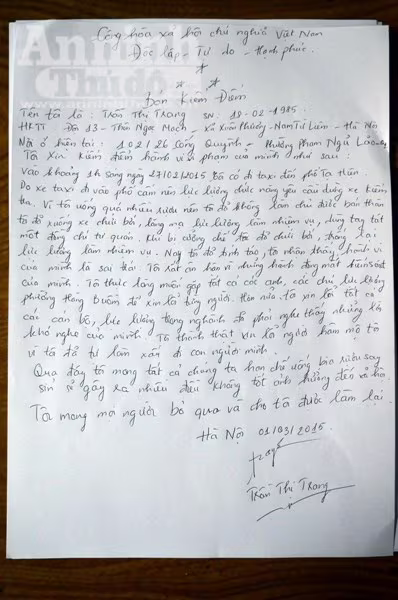 An ninh
Thủ đô
Cộng hòa xã hội chủ nghĩa Việt Nam
Độc lập - Tự do - Hạnh phúc.
Đơn Kiểm Điểm
Tên tôi là: Trần Thị Trang SN: 18-02-1985.
HKTT Đội 13 - Thôn Ngọc Mạch - Xã Xuân Phương - Nam Từ Liêm - Hà Nội
Nơi ở hiện tại: 102/26 Cống Quỳnh - Phường Phạm Ngũ Lão
Tôi xin kiểm điểm hành vi vi phạm của mình như sau:
Vào khoảng 1h sáng ngày 27/02/2015 tôi có đi taxi đến phố Tạ Hiện.
Do xe taxi đi vào phố cấm nên lực lượng chức năng yêu cầu dừng xe kiểm
tra. Vì tôi uống quá nhiều rượu nên tôi đã không làm chủ được bản thân
tôi đã xuống xe chửi bới, lăng mạ lực lượng làm nhiệm vụ, dùng tay tát
một đồng chí tự quản. Khi bị cưỡng chế tôi đã chửi bới, chống lại
lực lượng làm nhiệm vụ. Nay tôi đã tỉnh táo, tôi nhận thấy hành vi
của mình là sai trái. Tôi rất ân hận vì những hành động mất kiểm soát
của mình. Tôi thức lòng muốn gặp tất cả các anh, các chú lực lượng
phường Hàng Buồm để xin lỗi từng người. Hơn nữa tôi xin lỗi tất cả
các cán bộ, lực lượng trong nghành đã phải nghe thấy những lời
khó nghe của mình. Tôi thành thật xin lỗi người hâm mộ tôi
vì tôi đã tự làm xấu đi con người mình.
Qua đây tôi mong tất cả chúng ta hạn chế uống bia rượu say
sỉn sẽ gây ra nhiều điều không tốt ảnh hưởng đến xã hội
Tôi mong mọi người bỏ qua và cho tôi được làm lại.
Hà Nội 01/03/2015.
Trần Thị Trang